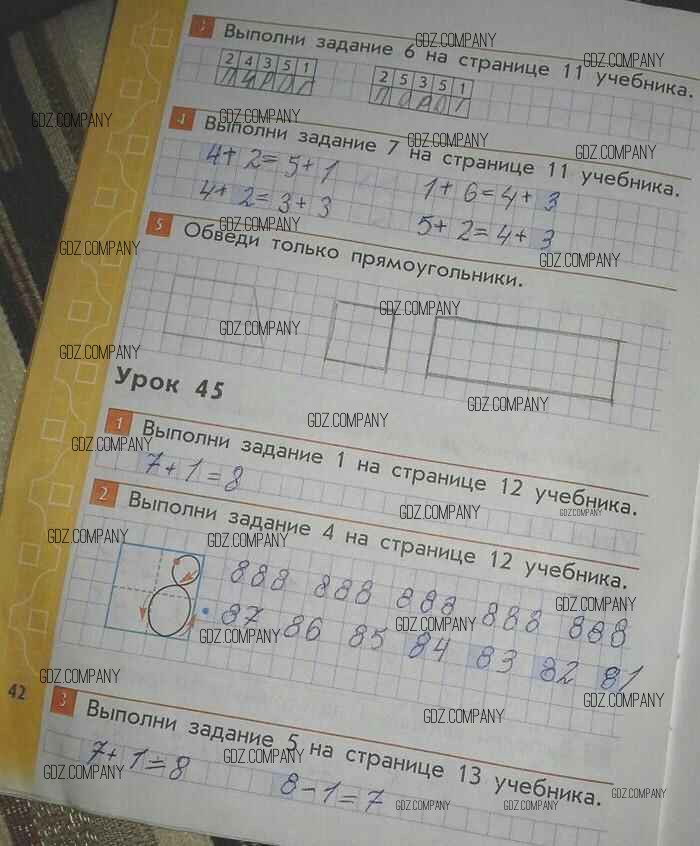 3 Выполни задание 6 на странице 11 учебника.
GDZ.COMPANY
GDZ.COMPANY
2 4 3 5 1
2 5 3 5 1
GDZ.COMPANY
GDZ.COMPANY
4 Выполни задание 7 на странице 11 учебника.
GDZ.COMPANY
GDZ.COMPANY
4 + 2 = 5 + 1
1 + 6 = 4 + 3
4 + 2 = 3 + 3
5 + 2 = 4 + 3
GDZ.COMPANY
5 Обведи только прямоугольники.
GDZ.COMPANY
GDZ.COMPANY
GDZ.COMPANY
GDZ.COMPANY
GDZ.COMPANY
Урок 45
GDZ.COMPANY
GDZ.COMPANY
1 Выполни задание 1 на странице 12 учебника.
GDZ.COMPANY
7 + 1 = 8
GDZ.COMPANY
GDZ.COMPANY
2 Выполни задание 4 на странице 12 учебника.
GDZ.COMPANY
GDZ.COMPANY
888 888 888 888 888
GDZ.COMPANY
87 86 85 84 83 82 81
GDZ.COMPANY
GDZ.COMPANY
GDZ.COMPANY
42
GDZ.COMPANY
GDZ.COMPANY
3 Выполни задание 5 на странице 13 учебника.
GDZ.COMPANY
7 + 1 = 8
8 - 1 = 7
GDZ.COMPANY
GDZ.COMPANY
GDZ.COMPANY
GDZ.COMPANY